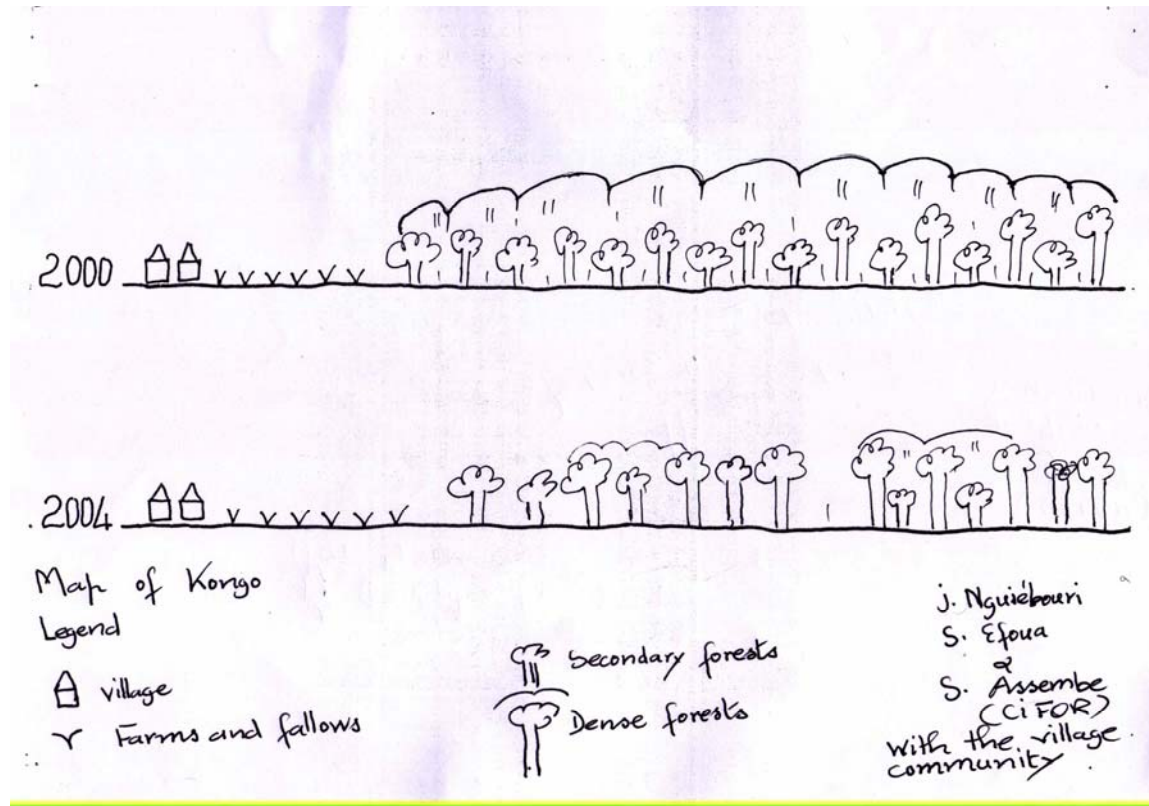 2000
2004
Map of Kongo
Legend
village
Farms and fallows
Secondary forests
Dense forests
J. Nguiébouri
S. Efoua
&
S. Assembe
(CiFOR)
with the village
community